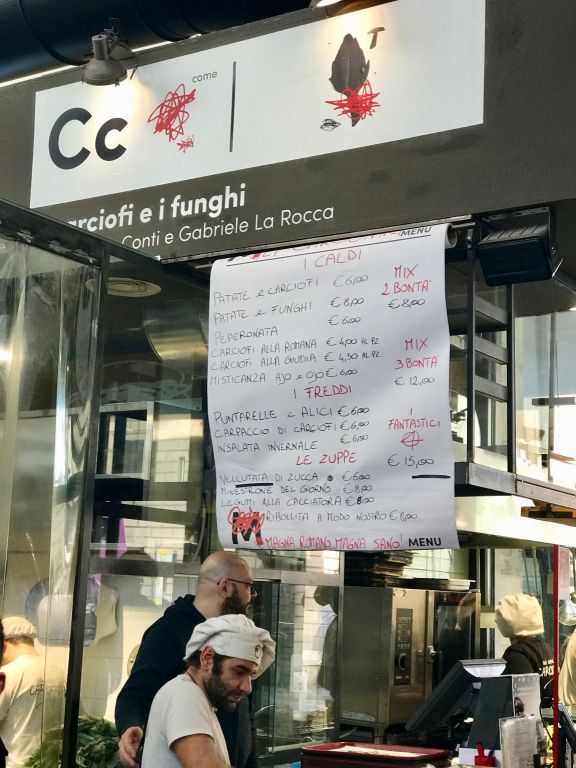 come
Cc
T
carciofi e i funghi
Conti e Gabriele La Rocca
MENU
I CALDI
PATATE e CARCIOFI €6,00
PATATE e FUNGHI €8,00
PEPERONATA €6,00
CARCIOFI ALLA ROMANA €4,00 AL PZ.
CARCIOFI ALLA GIUDIA €4,50 AL PZ.
MISTICANZA AJO e OJO €6,00
MIX
2 BONTA'
€8,00
MIX
3 BONTA'
€12,00
I FREDDI
PUNTARELLE e ALICI €6,00
CARPACCIO DI CARCIOFI €6,00
INSALATA INVERNALE €6,00
I
FANTASTICI
4
€15,00
LE ZUPPE
VELLUTATA DI ZUCCA €6,00
MINESTRONE DEL GIORNO €8,00
LEGUMI ALLA CACCIATORA €8,00
RIBOLLITA A MODO NOSTRO €8,00
MAGNA ROMANO MAGNA SANO! MENU